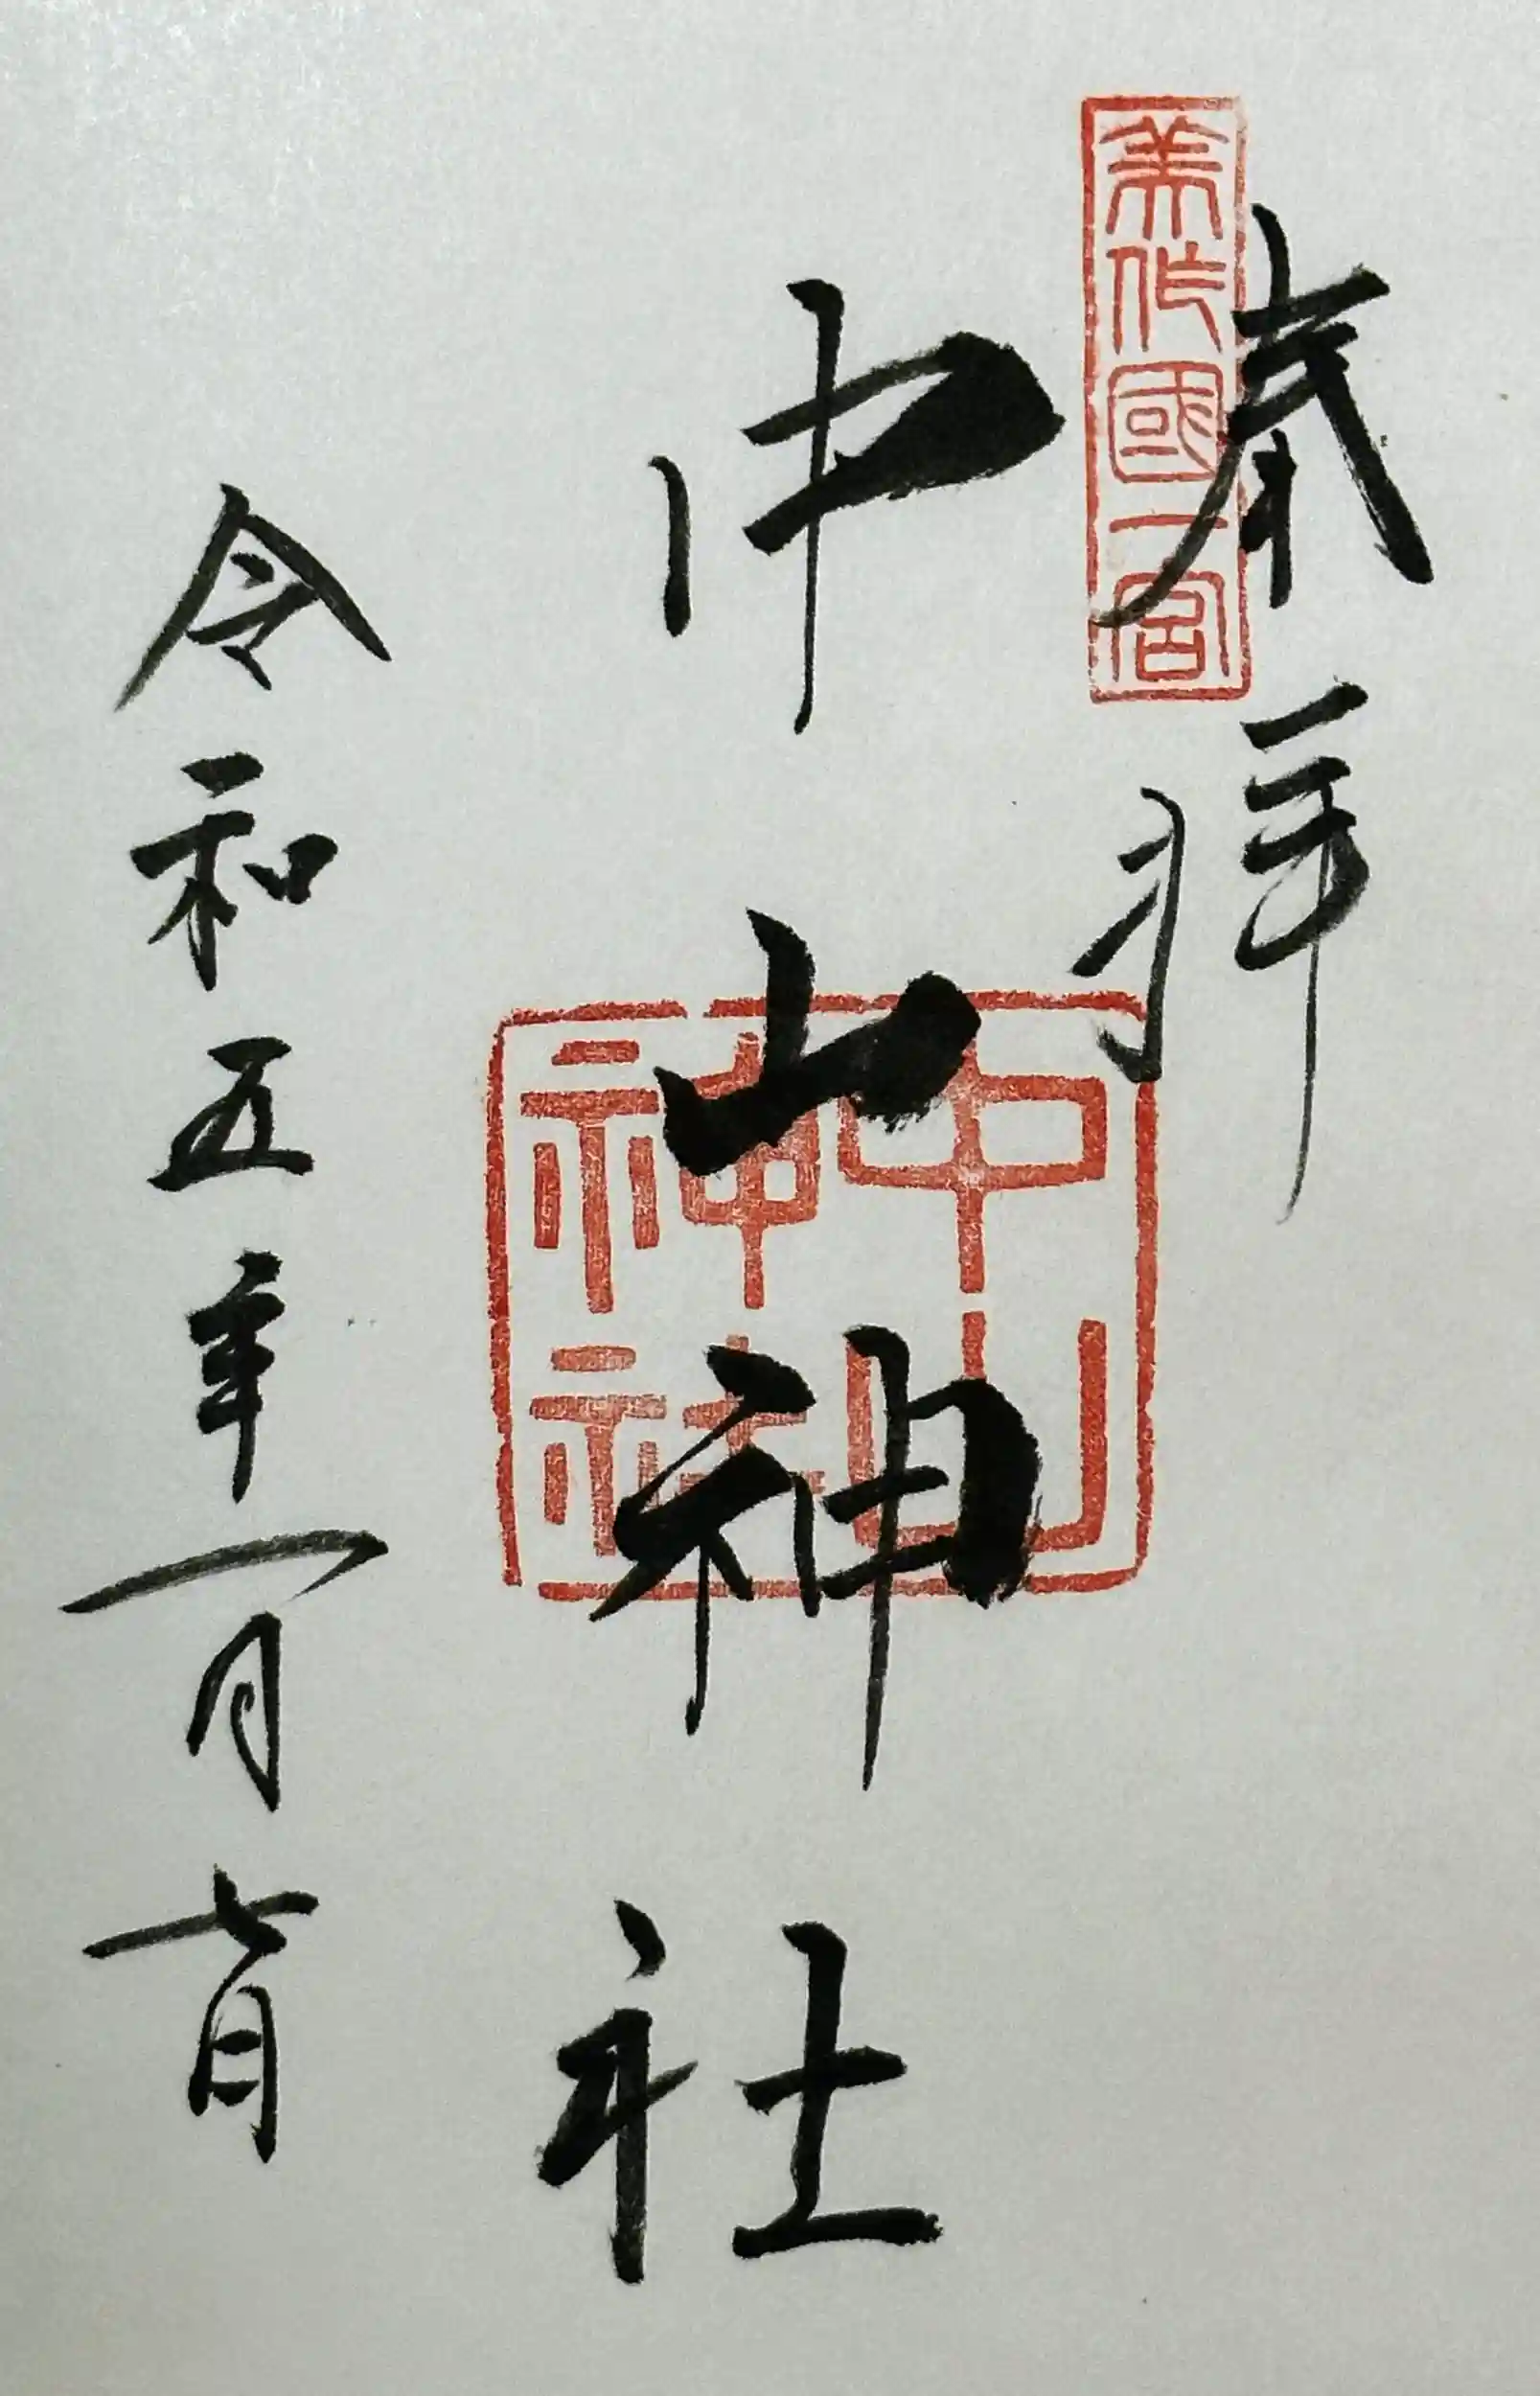 奉拝
美作國一宮
中山神社
中山
神社
令和五年一月七日